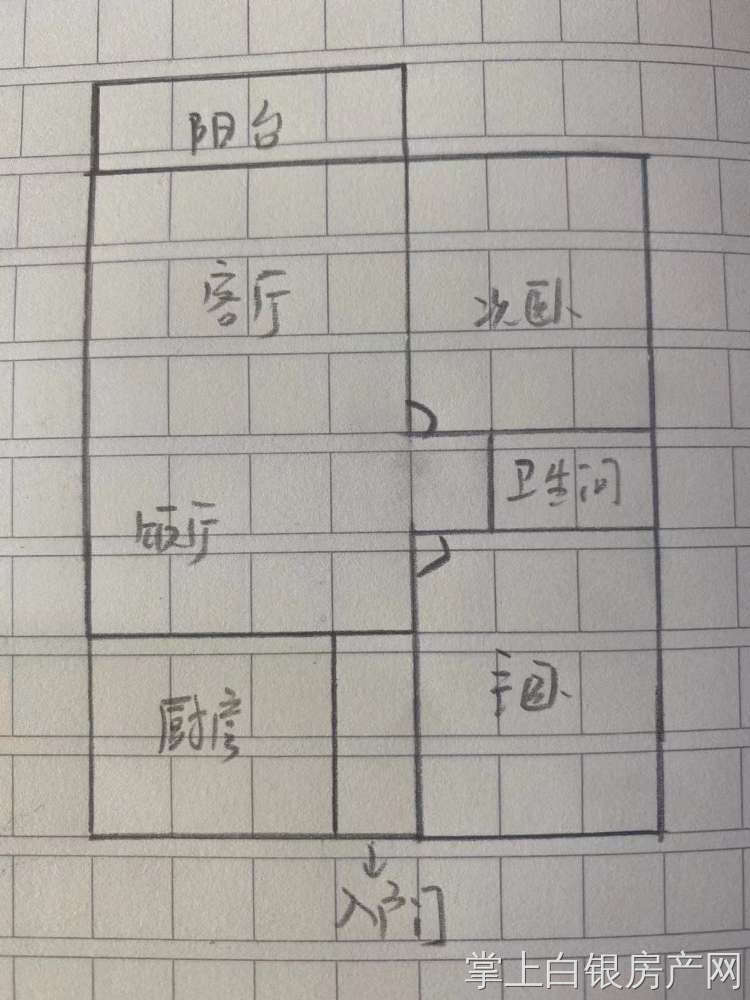 阳台
客厅
次卧
卫生间
饭厅
主卧
厨房
入户门
掌上白银房产网